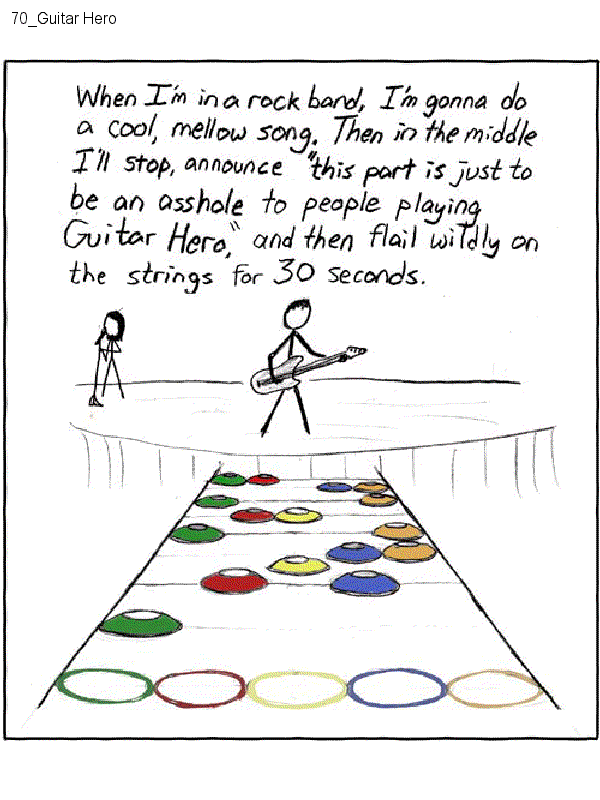 70_Guitar Hero
When I'm in a rock band, I'm gonna do
a cool, mellow song. Then in the middle
I'll stop, announce "this part is just to
be an asshole to people playing
Guitar Hero," and then flail wildly on
the strings for 30 seconds.